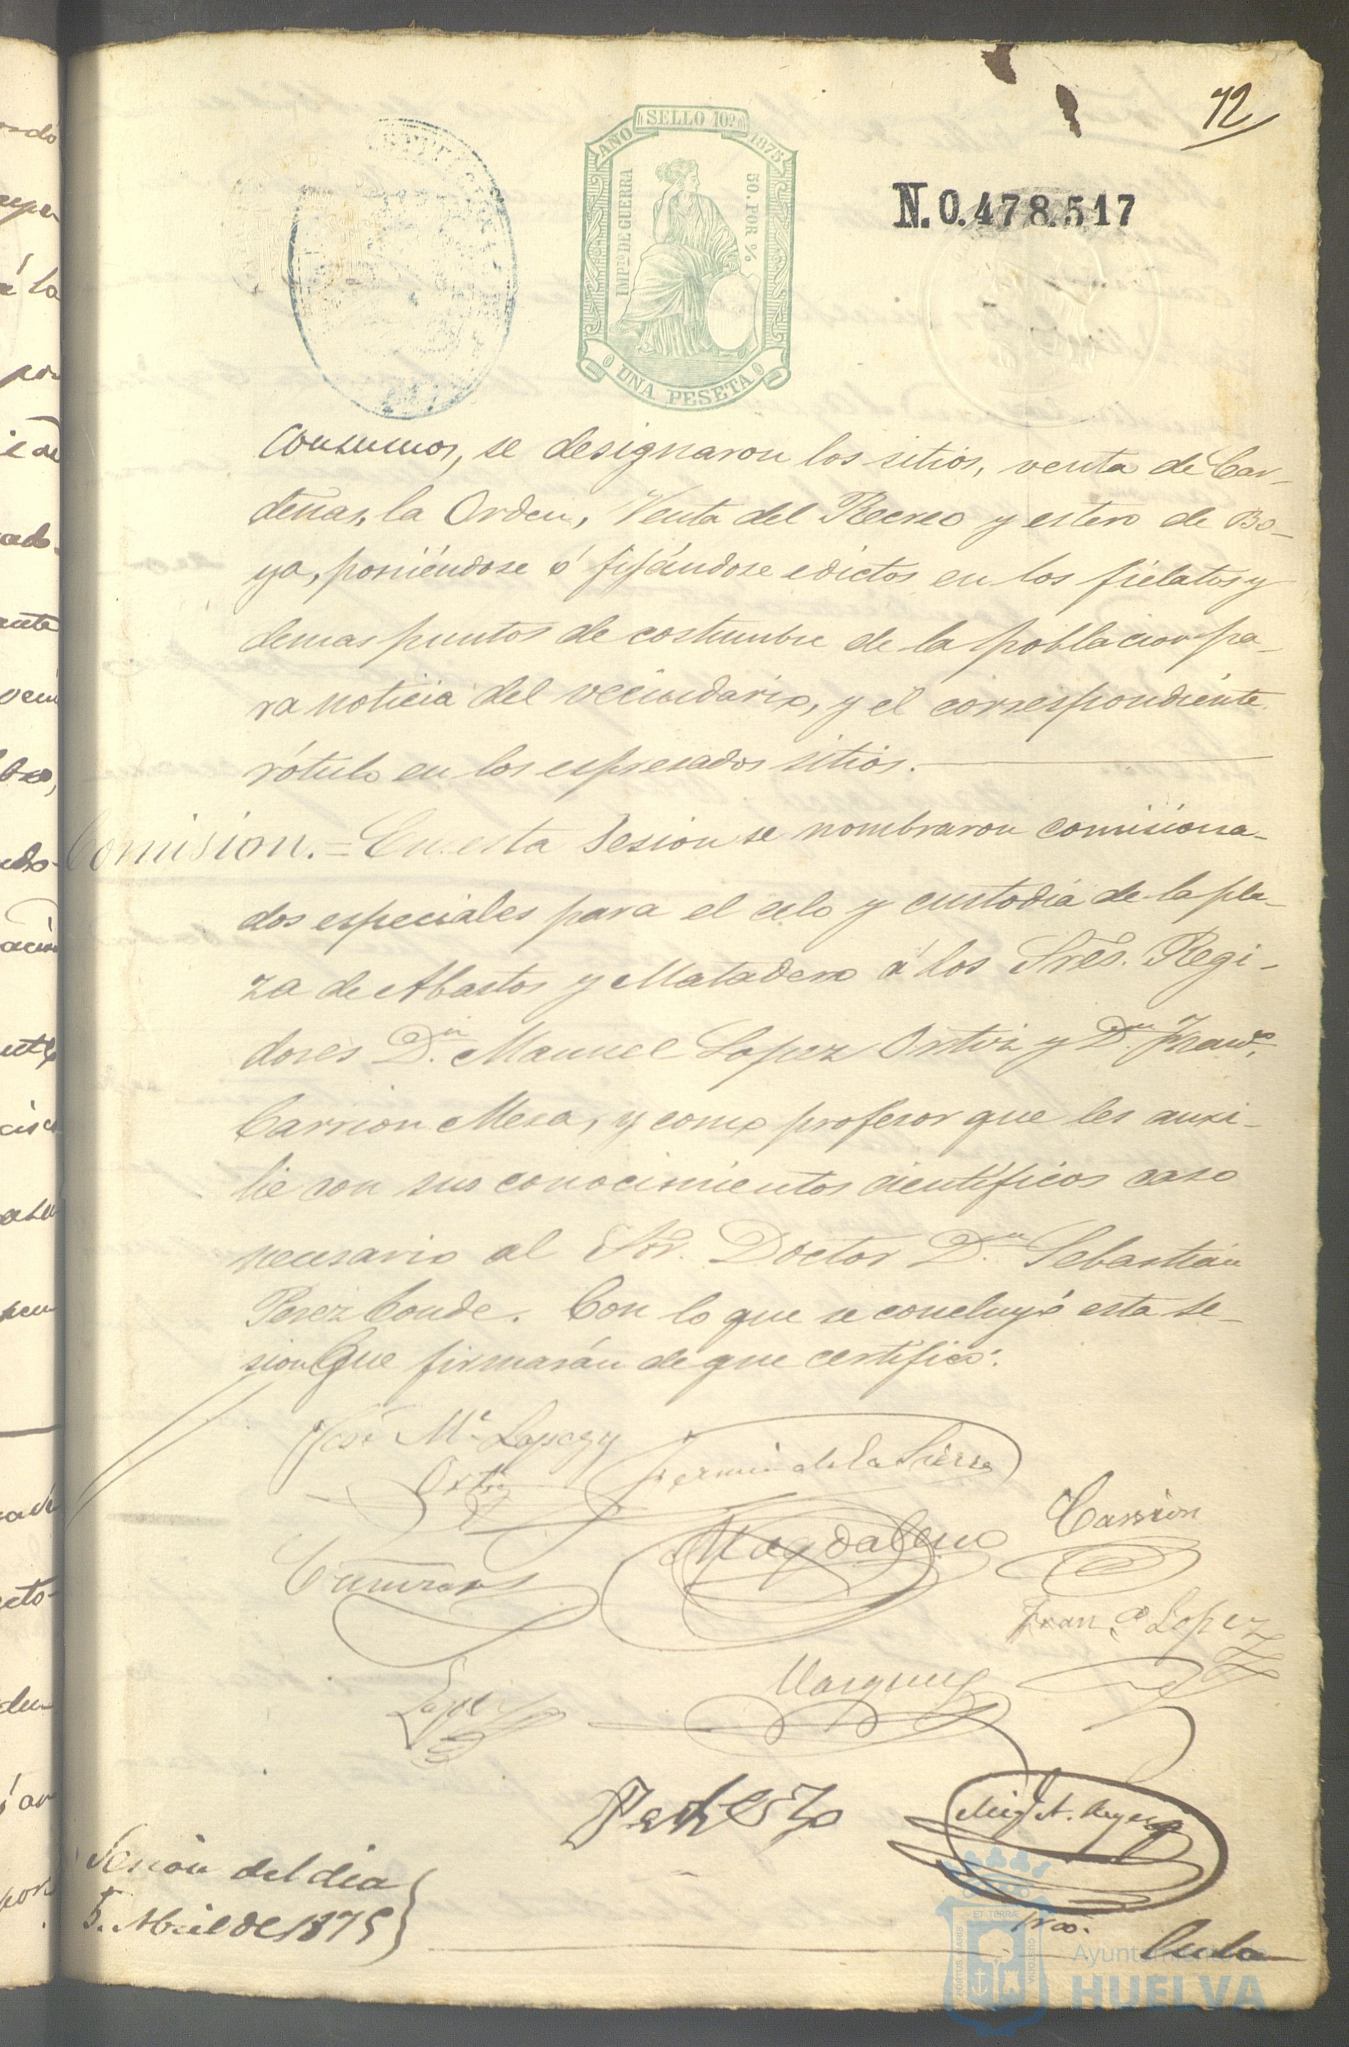 72
AÑO SELLO 10º 1875
IMPtº DE GUERRA
50. POR %
UNA PESETA
N.0.478.517
Consumos, se designaron los sitios, venta de Car-
denas, la Orden, Venta del Recreo y estero de Bo-
ya, poniéndose ó fijándose edictos en los fielatos y
demas puntos de costumbre de la poblacion pa-
ra noticia del vecindario, y el correspondiente
rótulo en los espresados sitios.
Comision. = En esta Sesion se nombraron comisiona-
dos especiales para el celo y custodia de la pla-
za de Abastos y Matadero á los Sres. Regi-
dores Dn. Manuel Lopez Ortiz y Dn. Franco.
Carrion Mesa, y como profesor que les auxi-
lie con sus conocimientos cientificos caso
necesario al Sor. Doctor Dn. Sebastian
Perez Conde. Con lo que se concluyó esta se-
sion que firmarán de que certifico.
José Ma. Lopez y
Ortiz
Fermin de la Sierra
Magdaleno
Carrion
Franco Lopez
Marquez
Lopez
Sesion del dia
5. Abril de 1875
En la
Ayuntamiento
HUELVA